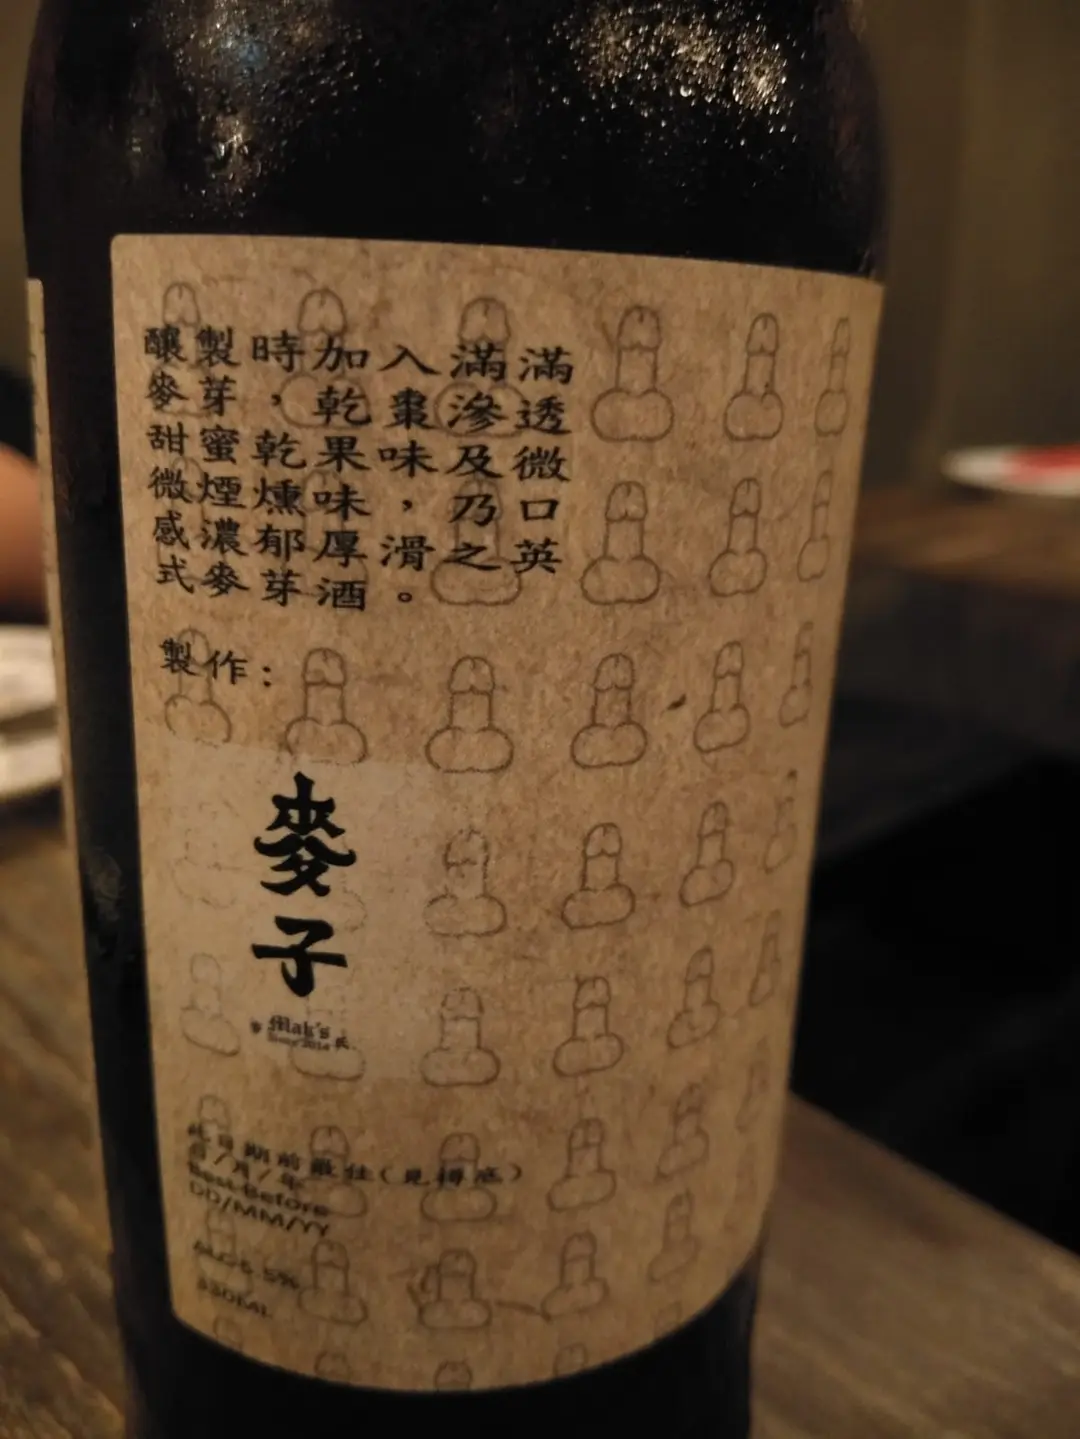 釀製時加入滿滿
麥芽，乾棗滲透
甜蜜乾果味及微
微煙燻味，乃口
感濃郁厚滑之英
式麥芽酒。
製作：
麥子
Mak's
Since 2014
此日期前最佳(見樽底)
日/月/年
Best Before
DD/MM/YY
ALC 5.5%
330ML